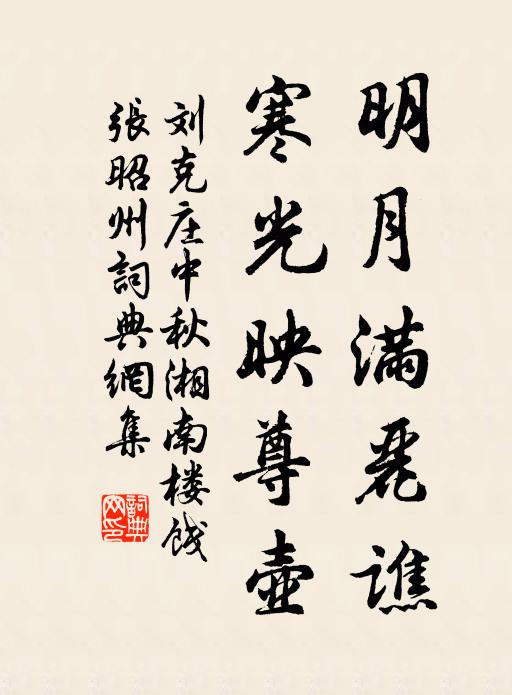 明月满麗譙
寒光映尊壺
刘克庄中秋湘南楼饯
張昭州詞典網集
詞典网印